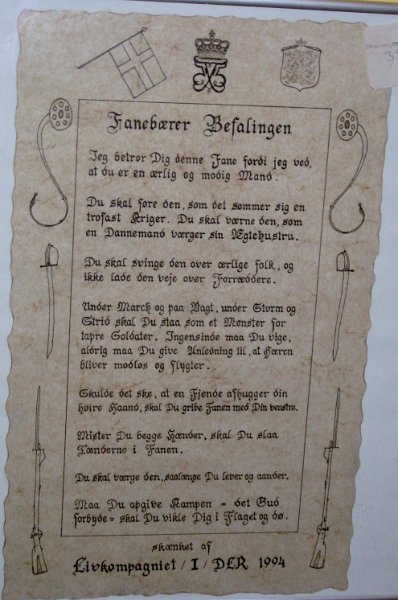 Fanebærer Befalingen
Jeg betror Dig denne Fane fordi jeg ved,
at du er en ærlig og modig Mand.
Du skal føre den, som det sømmer sig en
trofast Kriger. Du skal værne den, som
en Dannemand værger sin Ægtehustru.
Du skal svinge den over ærlige folk, og
ikke lade den veje over Forræddere.
Under March og paa Vagt, under Storm og
Strid skal Du staa som et Mønster for
tapre Soldater. Ingensinde maa Du vige,
aldrig maa Du give Anledning til, at Hæren
bliver modløs og flygter.
Skulde det ske, at en Fjende afhugger din
høire Haand, skal Du gribe Fanen med Din venstre.
Mister Du begge Hænder, skal Du slaa
Tænderne i Fanen.
Du skal værge den, saalænge Du lever og aander.
Maa Du opgive Kampen - det Gud
forbyde - skal Du vikle Dig i Flaget og dø.
skænket af
Livkompagniet / I / DLR 1994